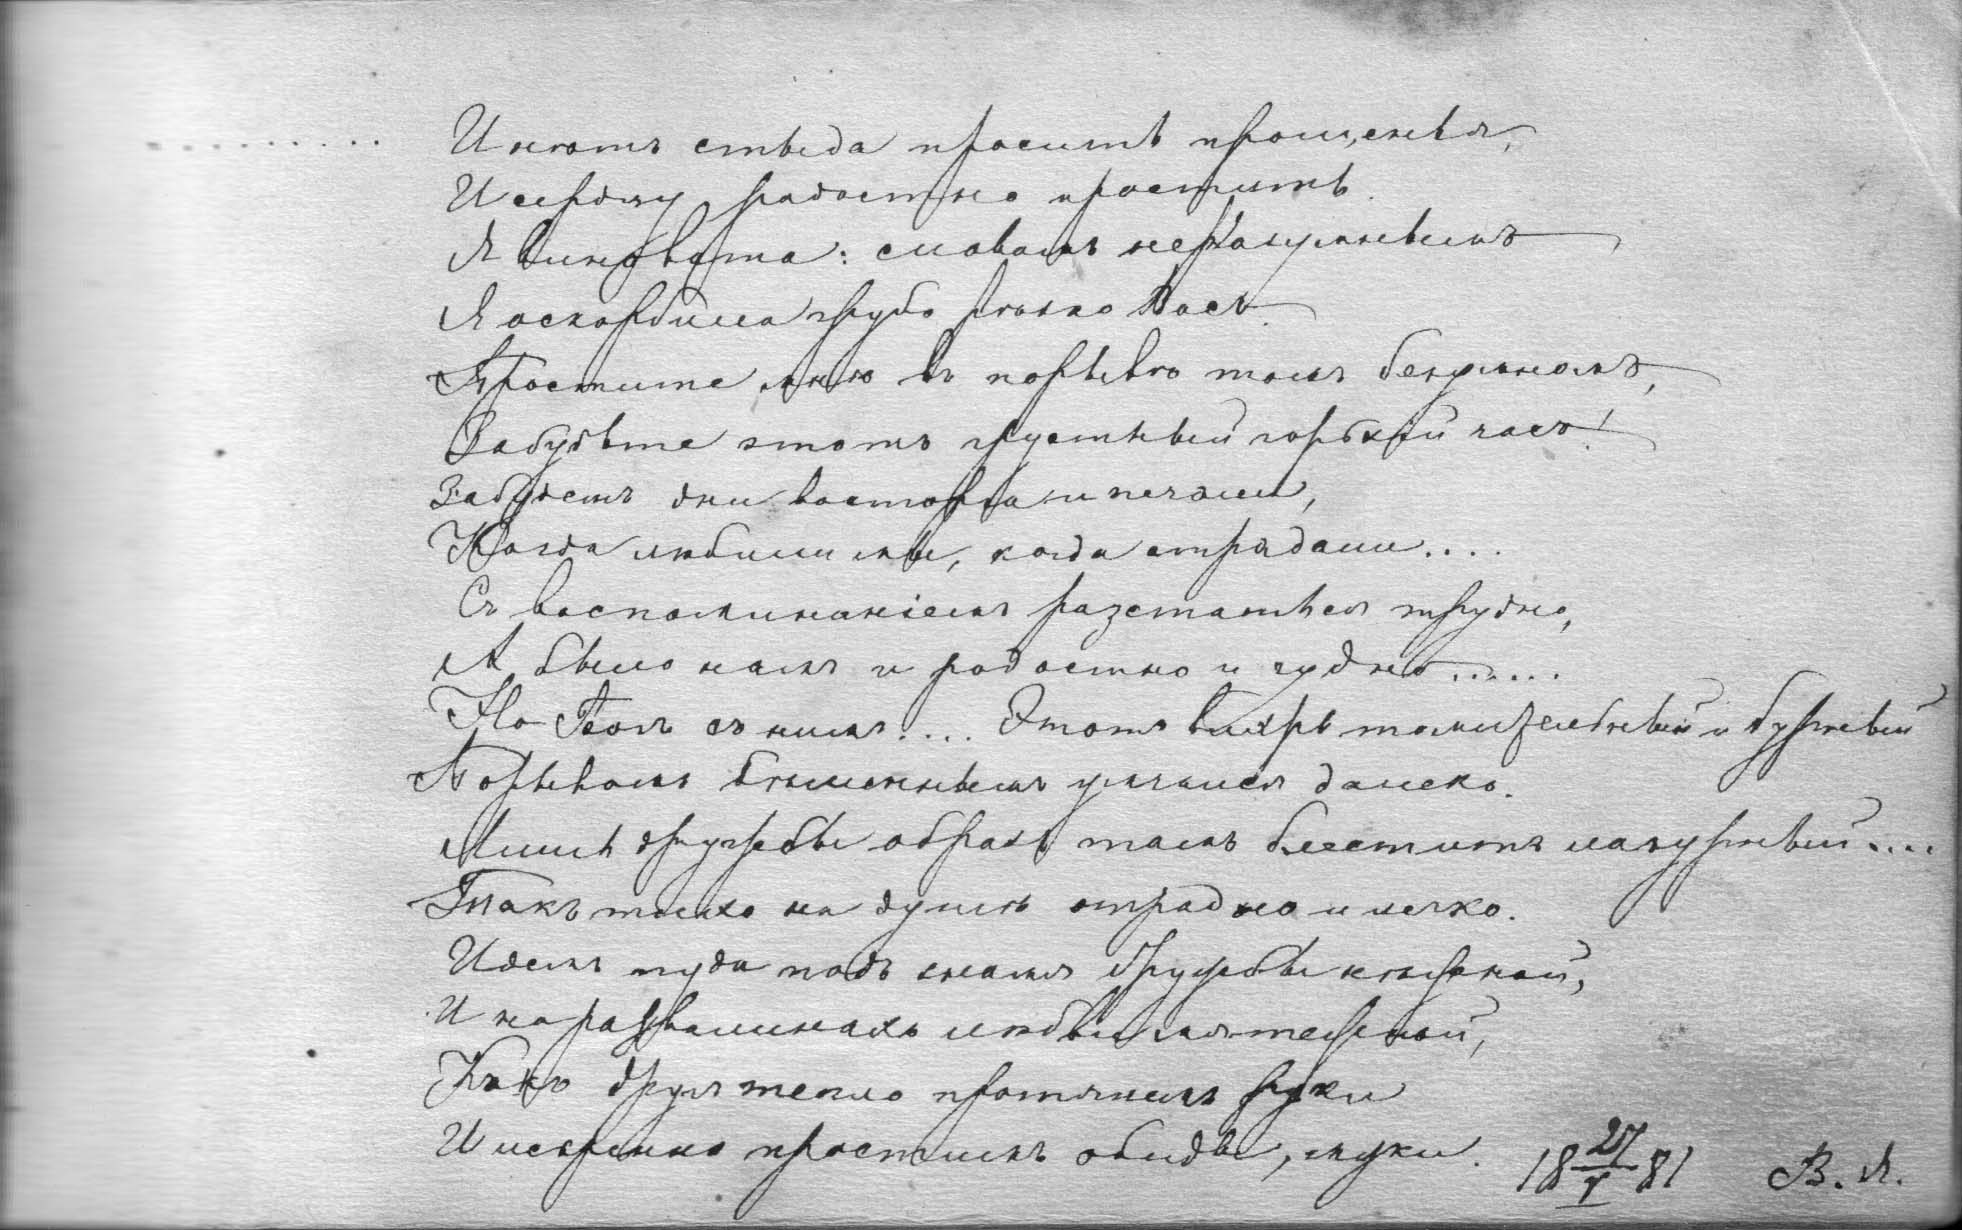 .......... И нѣтъ стыда просить прощенья,
И сердцу радостно простить.
Я виновата: словомъ неразумнымъ
Я оскорбила грубо рѣзко Васъ.
Простите мнѣ въ порывѣ томъ безумномъ,
Забудьте этотъ грустный горькій часъ!
Забудемъ дни восторга и печали,
Когда любили мы, когда страдали....
Съ воспоминаніемъ разстаться трудно,
А было намъ и радостно и чудно......
Но Богъ съ нимъ.... Этотъ вихрь томительный и бурный
Порывомъ бѣшеннымъ умчался далеко.
Лишь дружбы образъ тамъ блеститъ лазурный....
Такъ тихо на душѣ отрадно и легко.
Идемъ туда подъ знамя дружбы нѣжной,
И на развалинахъ любви мятежной,
Какъ друзья тепло протянемъ руки
И искренно простимъ обиды, муки.
18 27/V 81 В. Л.